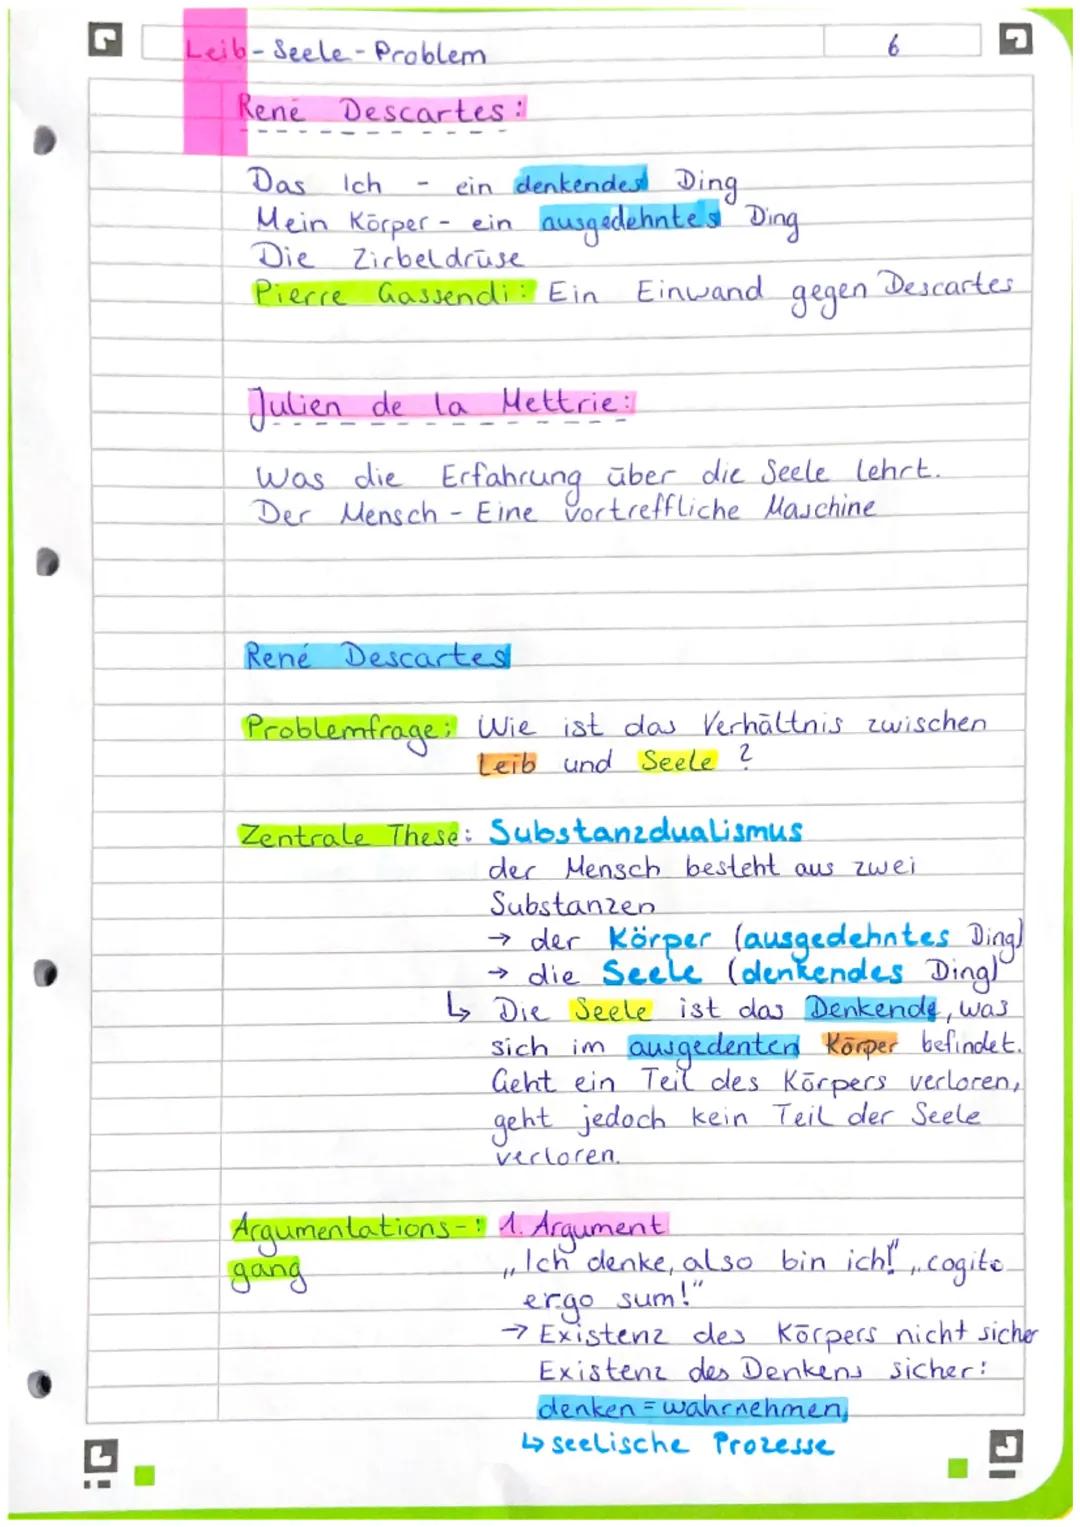 Leib-Seele-Problem
6
René Descartes:
Das Ich - ein denkendes Ding
Mein Körper - ein ausgedehntes Ding
Die Zirbeldrüse
Pierre Gassendi: Ein Einwand gegen Descartes
Julien de la Mettrie:
Was die Erfahrung über die Seele lehrt.
Der Mensch - Eine vortreffliche Maschine
René Descartes
Problemfrage: Wie ist das Verhältnis zwischen
Leib und Seele?
Zentrale These: Substanzdualismus
der Mensch besteht aus zwei
Substanzen
→ der Körper (ausgedehntes Ding)
→ die Seele (denkendes Ding)
↳ Die Seele ist das Denkende, was
sich im ausgedenten Körper befindet.
Geht ein Teil des Körpers verloren,
geht jedoch kein Teil der Seele
verloren.
Argumentations-: 1. Argument
gang „Ich denke, also bin ich!" „cogito
ergo sum!"
→ Existenz des Körpers nicht sicher
Existenz des Denkens sicher:
denken = wahrnehmen,
↳ seelische Prozesse